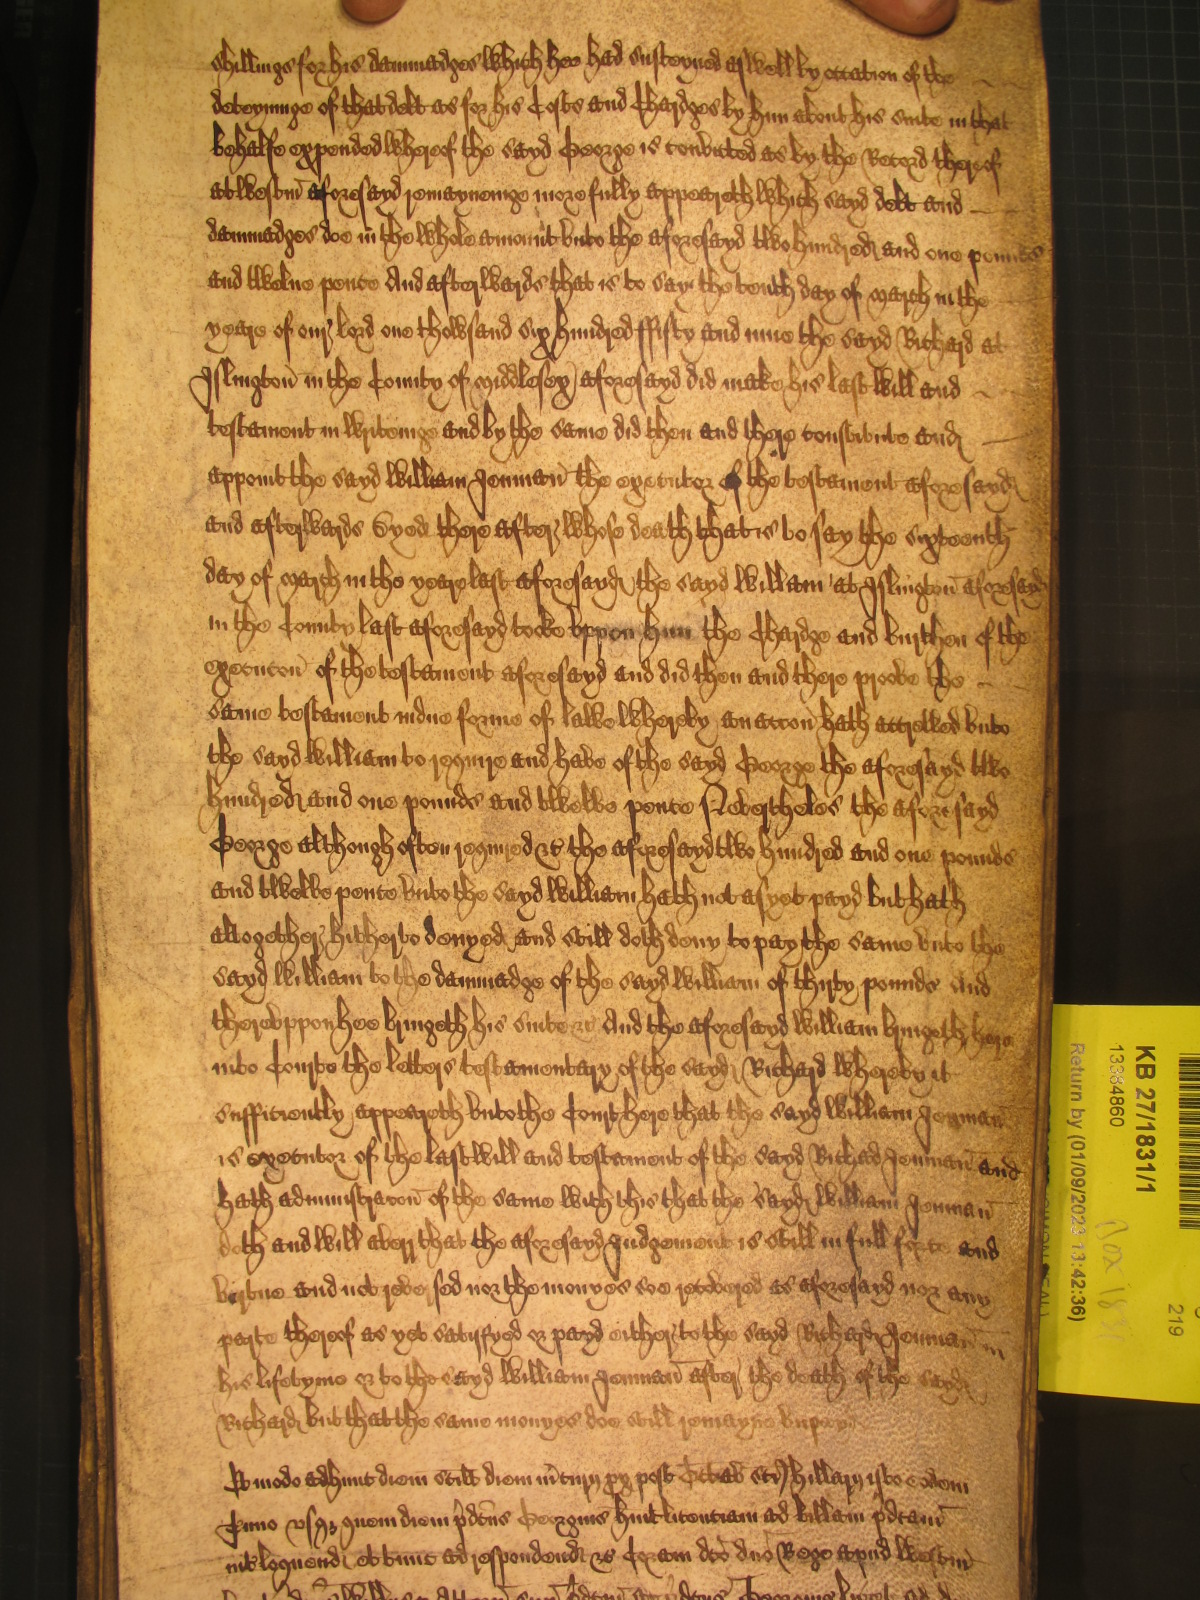 shillings for his dammadges which hee had susteyned aswell by occation of the
deteyninge of that debt as for his Costs and Chardges by him about his suite in that
behalfe expended whereof the sayd George is convicted as by the Record thereof
at Westm aforesayd remayneinge more fully appeareth which sayd debt and
dammadges doe in the whole amount unto the aforesayd two hundred and one pounds
and twelve pence And afterwards that is to say the tenth day of March in the
yeare of our lord one thowsand six hundred ffifty and nine the sayd Richard at
Islington in the County of Middlesex aforesayd did make his last will and
testament in writeinge and by the same did then and there constitute and
appoint the sayd William Jenman the executor of the testament aforesayd
and afterwards dyed there after whose death that is to say the sixteenth
day of March in the yeare last aforesayd the sayd William at Islington aforesayd
in the County last aforesayd tooke uppon him the Chardge and burthen of the
execucon of the testament aforesayd and did then and there proove the
same testament in due forme of lawe whereby an accon hath accrewed unto
the sayd William to require and have of the sayd George the aforesayd two
hundred and one pounds and twelve pence Nevertheles the aforesayd
George although often required &c the aforesayd two hundred and one pounds
and twelve pence unto the sayd William hath not as yet payd but hath
altogether hitherto denyed and still doth deny to pay the same unto the
sayd William to the dammadge of the sayd William of thirty pounds And
thereuppon hee bringeth his suite &c And the aforesayd William bringeth here
into Courte the letters testamentary of the sayd Richard whereby it
sufficiently appeareth unto the Court here that the sayd William Jenman
is executor of the last will and testament of the sayd Richard Jenman and
hath administracon of the same with this that the sayd William Jenman
doth and will averr that the aforesayd Judgement is still in full force and
virtue and not reversed nor the monyes soe recovered as aforesayd nor any
parte thereof as yet satisfyed or payd either to the sayd Richard Jenman in
his lifetyme or to the sayd William Jenman after the death of the sayd
Richard but that the same monyes doe still remayne unpayd
Et modo ad hunc diem scilt diem post Octab Sci Hillarij isto eodem
Tmino usq quem diem pdcus Georgius huit licentiam ad billam pdcam
intloquend et tunc ad respondend &c Coram dco dno Rege apud Westm
KB 27/1831/1
13384860
Return by (01/09/2023 13:42:36)
219
Box 1831